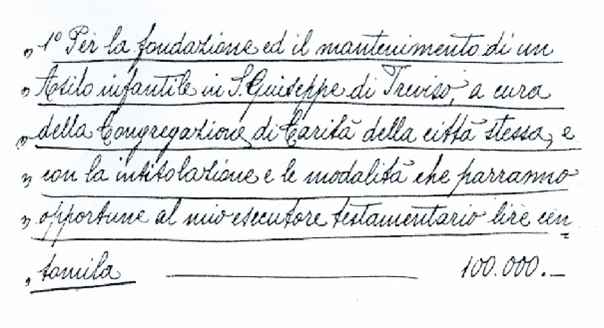 „ 1° Per la fondazione ed il mantenimento di un
„ Asilo infantile in S. Giuseppe di Treviso, a cura
„ della Congregazione di Carità della città stessa, e
„ con la intitolazione e le modalità che parranno
„ opportune al mio esecutore testamentario lire cen
„ tomila ———— 100.000.—